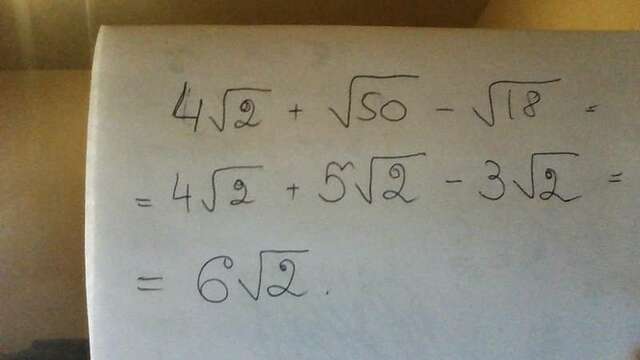 4√2 + √50 - √18 =
= 4√2 + 5√2 - 3√2 =
= 6√2.